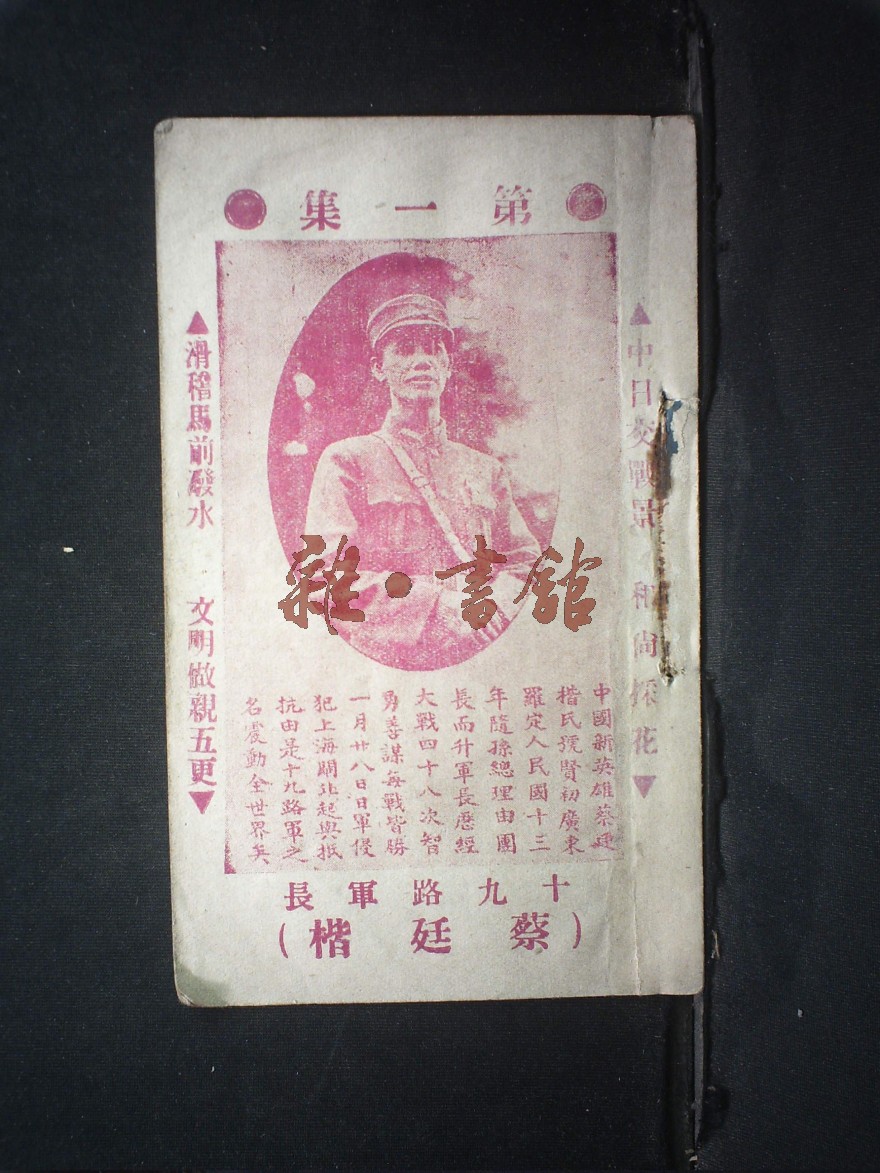 第一集
▲中日交戰景 和尚採花▼
中國新英雄蔡廷
楷氏號賢初廣東
羅定人民國十三
年隨孫總理由團
長而升軍長歷經
大戰四十八次智
勇善謀每戰皆勝
一月廿八日日軍侵
犯上海閘北起與抵
抗由是十九路軍之
名震動全世界矣
▲滑稽馬前潑水 文明做親五更▼
十九路軍長
(蔡廷楷)
雜·書館